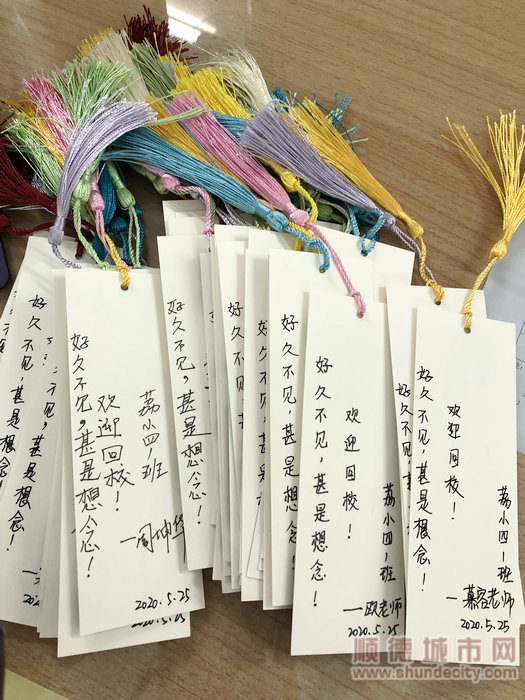 好久不见,甚是想念!
好久不见,甚是想念!
欢迎回校!
荔小四1班
2020.5.25
好久不见,甚是想念!
好久不见,
好久不见,甚是想念!
欢迎回校!
荔小四1班
一欧老师
2020.5.25
好久不见,甚是想念!
欢迎回校!
荔小四1班
一慕容老师
2020.5.25
顺德城市网
www.shundecity.com